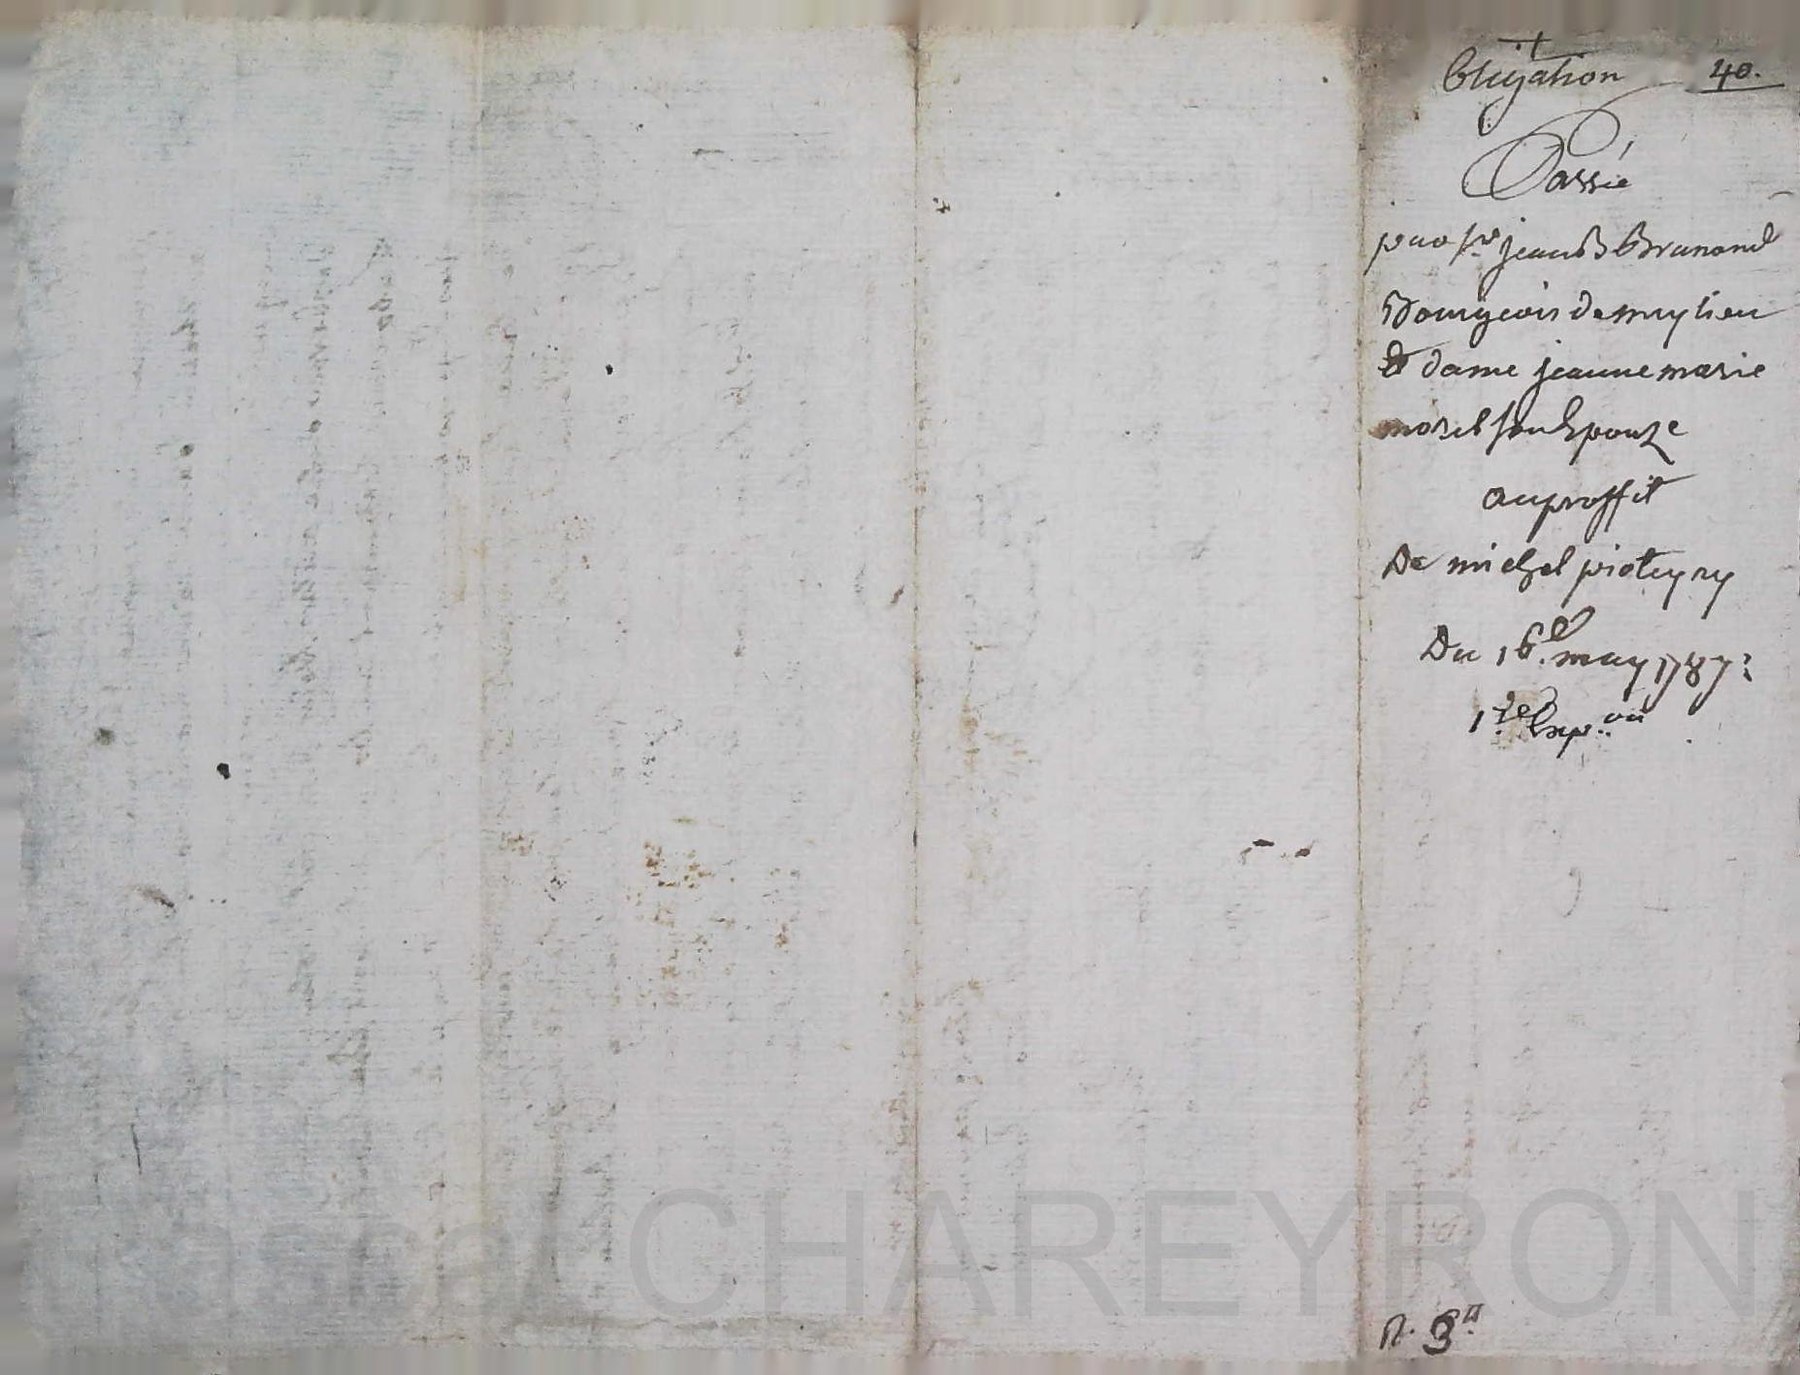 obligation 40.
Passée
par sr. jean B Brunand
Bourgeois de mylieu
& dame jeanne marie
morel son Epouze
au proffit
De michel pioteyry
Du 16e. may 1787
1re Exp.on
n. 3
Pascal CHAREYRON